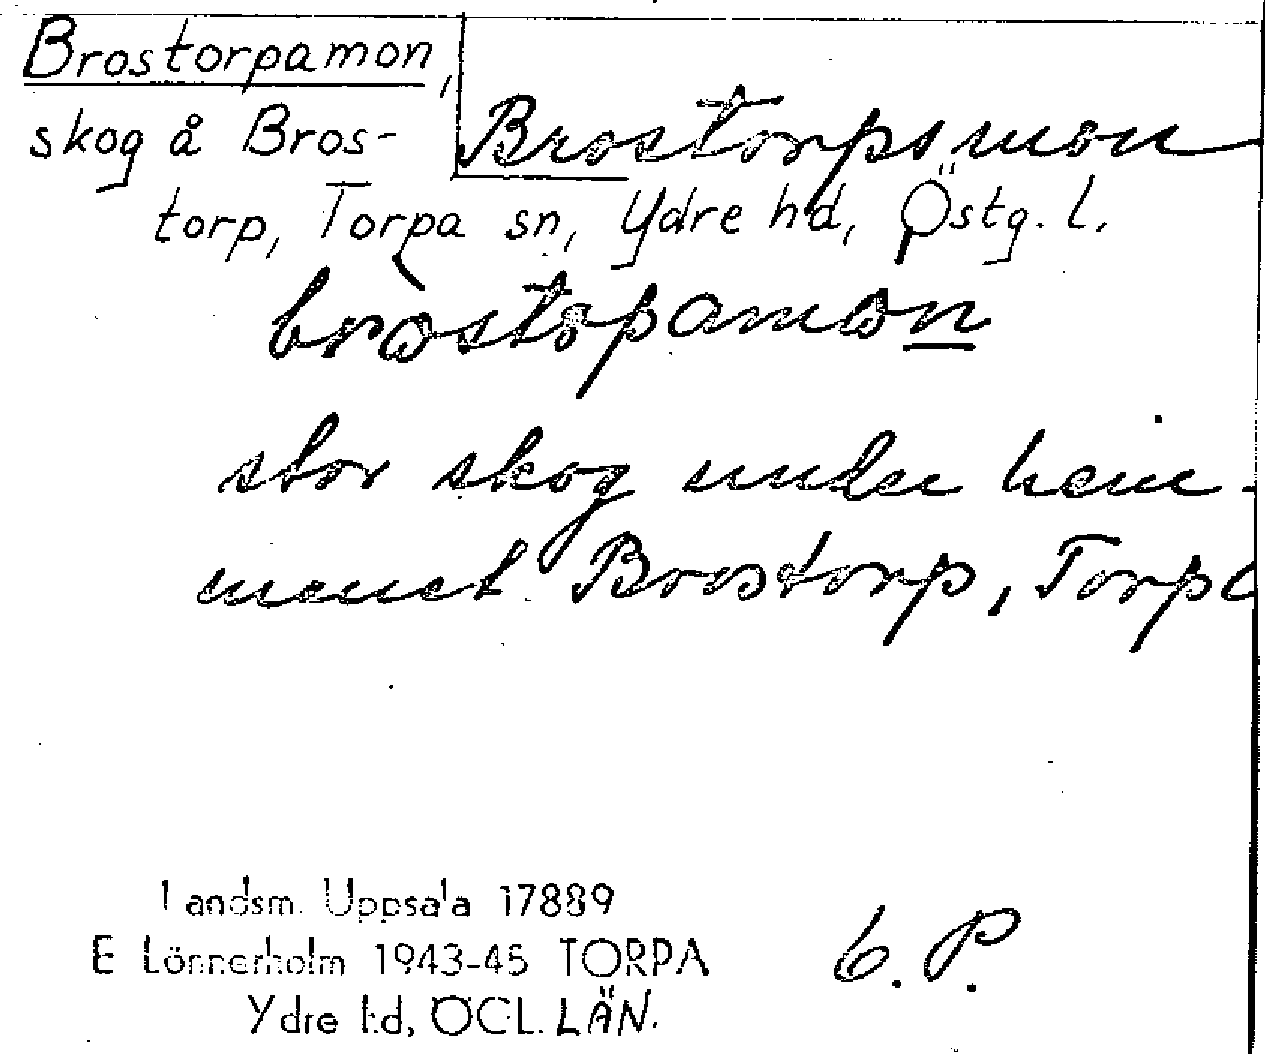 Brostorpamon,
skog å Bros-
torp, Torpa sn, Ydre hd, Östg. l.
Brostorpsmon
bròstòpamon
stor skog under hem-
manet Brostorp, Torpa
Landsm. Uppsala 17889
E Lönnerholm 1943-45 TORPA
Ydre hd, ÖGL. LÄN.
6. P.